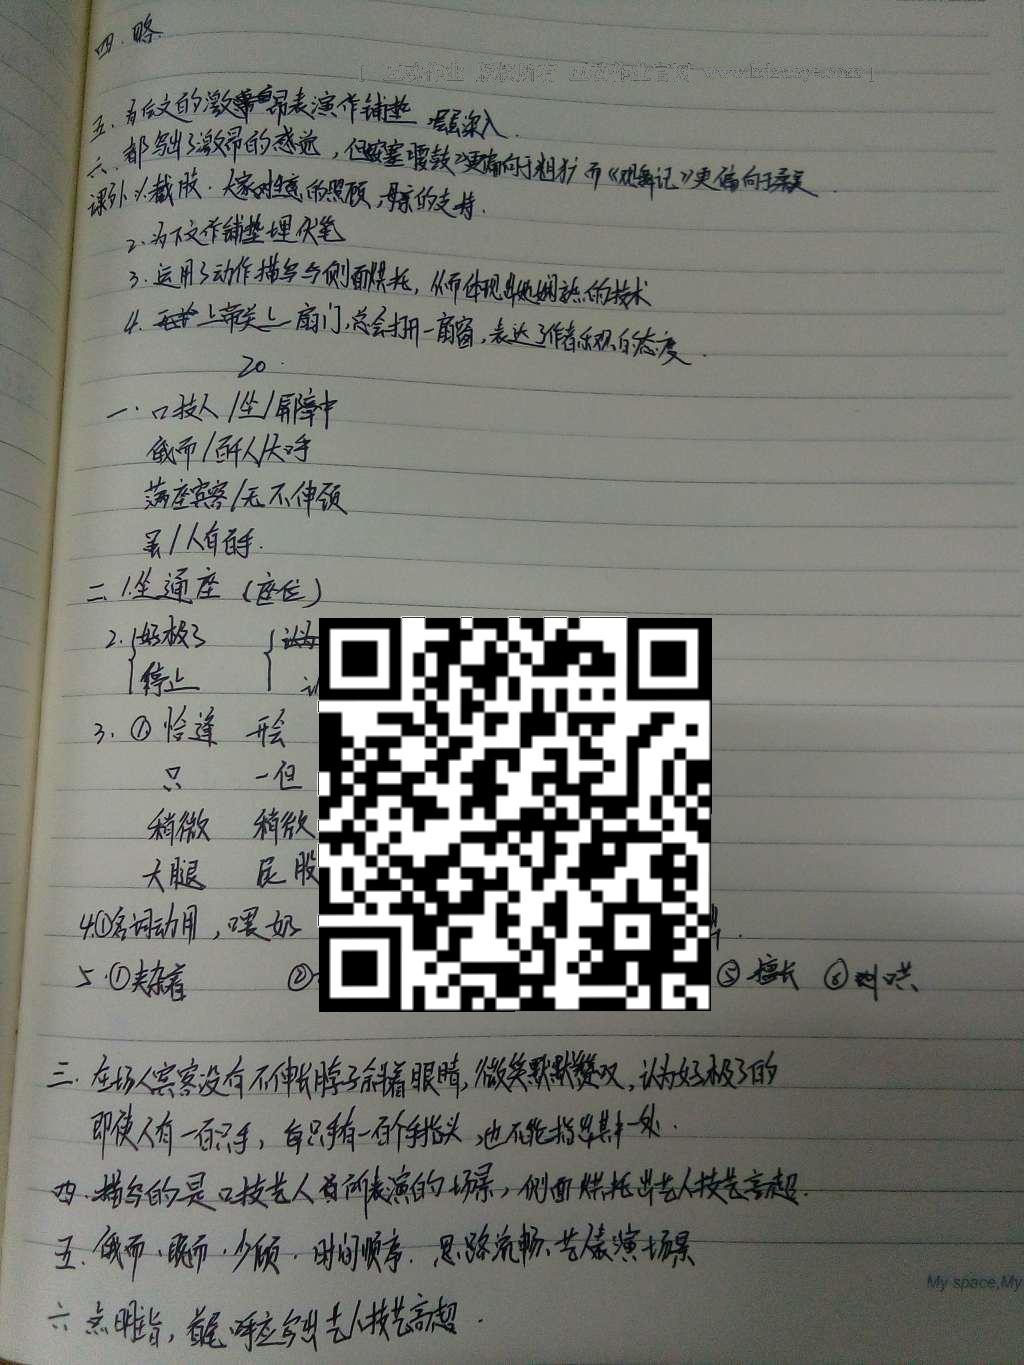 四.略
五.为后文的激昂表演作铺垫,层层深入.
六.都写出了激昂的感觉,但《安塞腰鼓》更偏向于粗犷而《观舞记》更偏向于柔美.
课外1.截肢.大家对生意的照顾,母亲的支持.
2.为下文作铺垫埋伏笔
3.运用了动作描写与侧面烘托,从而体现出她娴熟的技术
4.上帝关上一扇门,总会打开一扇窗,表达了作者乐观的态度.
20.
一.口技人/坐/屏障中
俄而/百千人/大呼
满座宾客/无不伸颈
虽/人有百手.
二.1.坐通座(座位)
2.好极了 认为
停止
3.①恰逢 开会
只 一但
稍微 稍微
大腿 屁股
4.①名词动用,喂奶
5.①夹杂着 ② ⑤擅长 ⑥哄
三.在场人宾客没有不伸长脖子斜着眼睛,微笑默默赞叹,认为好极了的
即使人有一百只手,每只手有一百个手指头,也不能指出其中一处.
四.描写的是口技艺人当所表演的场景,侧面烘托出艺人技艺高超.
五.俄而.既而.少顷.时间顺序.思路流畅.艺人表演场景
六.点明主旨,首尾呼应写出艺人技艺高超.
My space,My